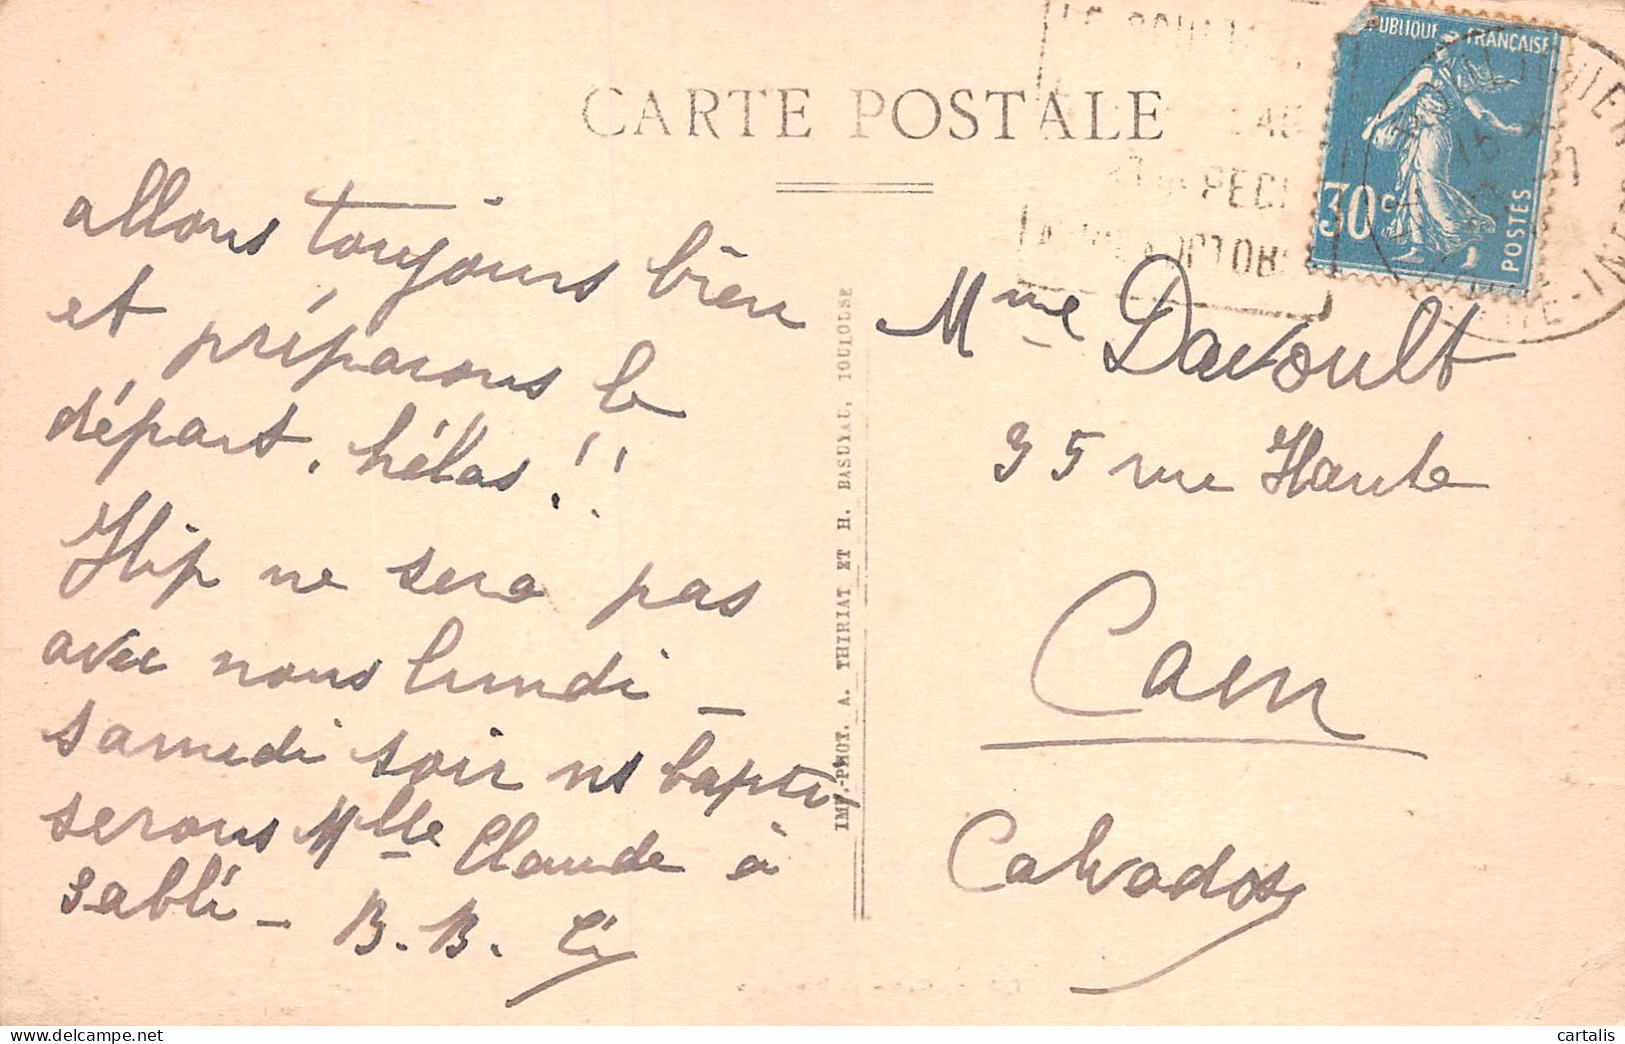 CARTE POSTALE
RÉPUBLIQUE FRANÇAISE
30c
POSTES
allons toujours bien
et préparons le
départ, hélas!!
Hip ne sera pas
avec nous lundi -
samedi soir ns bapti-
serons Mlle Claude à
sablé - B. B.
IMP.-PHOT. A. THIRIAT ET H. BASUYAU, TOULOUSE
Mme Davoult
95 rue Haute
Caen
Calvados
cartalis